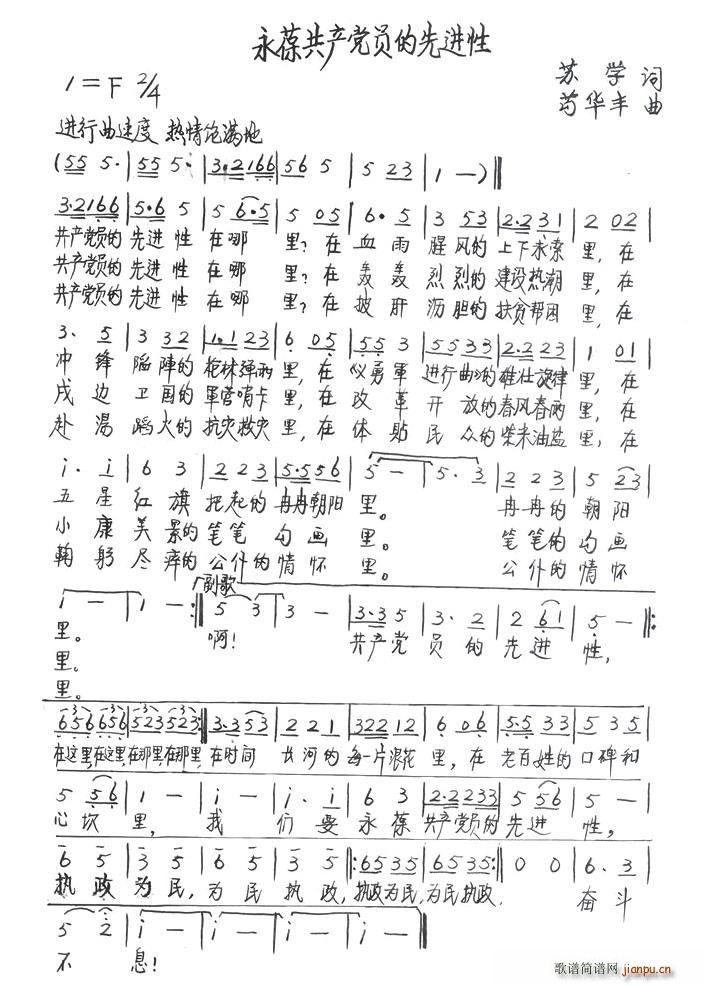 永葆共产党员的先进性
1=F 2/4
苏学 词
苟华丰 曲
进行曲速度 热情饱满地
(55 5·|55 5·|3·2166|56 5|5 23|1 —)‖
3·2166|5·6 5|5 6·5|5 05|6· 5|3 53|2·231|2 02|
共产党员的先进性在哪里?在血雨腥风的上下求索里,在
共产党员的先进性在哪里?在轰轰烈烈的建设热潮里,在
共产党员的先进性在哪里?在披肝沥胆的扶贫帮困里,在
3· 5|3 32|1·123|6 05|55 3|5533|2·223|1 01|
冲锋陷陣的枪林弹雨里,在《义勇軍进行曲》的雄壮旋律里,在
戍边卫国的軍营哨卡里,在改革开放的春风春雨里,在
赴湯蹈火的抗灾救灾里,在体貼民众的柴米油盐里,在
i· i|6 3|2 23|5·556|5 —|5· 3|2 23|5 23|
五星红旗托起的冉冉朝阳里。冉冉的朝阳
小康美景的笔笔勾画里。笔笔的勾画
鞠躬尽瘁的公仆的情怀里。公仆的情怀
副歌
i —|1 —:‖5 3|3 —|3·3 5|3· 2|2 61|5 —‖:
里。啊!共产党员的先进性,
里。
里。
656 656|523 523‖3·3 53|2 21|322 12|6· 06|5·5 33|5 35|
在这里,在这里,在那里,在那里,在时间长河的每一片浪花里,在老百姓的口碑和
5 56|1 —|i —|i· i|6 3|2·2233|5 56|5 —|
心坎里,我们要永葆共产党员的先进性,
6 5|3 5|6 5|3 5‖:6535|6535:‖0 0|6· 3|
执政为民,为民执政,执政为民,为民执政.奋斗
5 2|i —|i —|i —|i —‖
不息!
歌谱简谱网
jianpu.cn